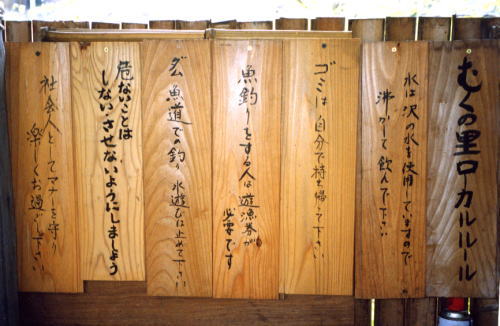 むくの里ローカルルール
水は沢の水を使用していますので
沸かして飲んで下さい
ゴミは自分で持ち帰って下さい
魚釣りをする人は遊漁券が
必要です
ダム魚道での釣り水遊びは止めて下さい
危ないことは
しない・させないようにしましょう
社会人としてマナーを守り
楽しくお過ごし下さい